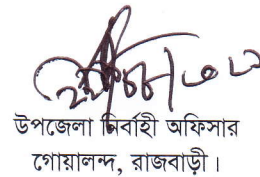 উপজেলা নির্বাহী অফিসার
গোয়ালন্দ, রাজবাড়ী।